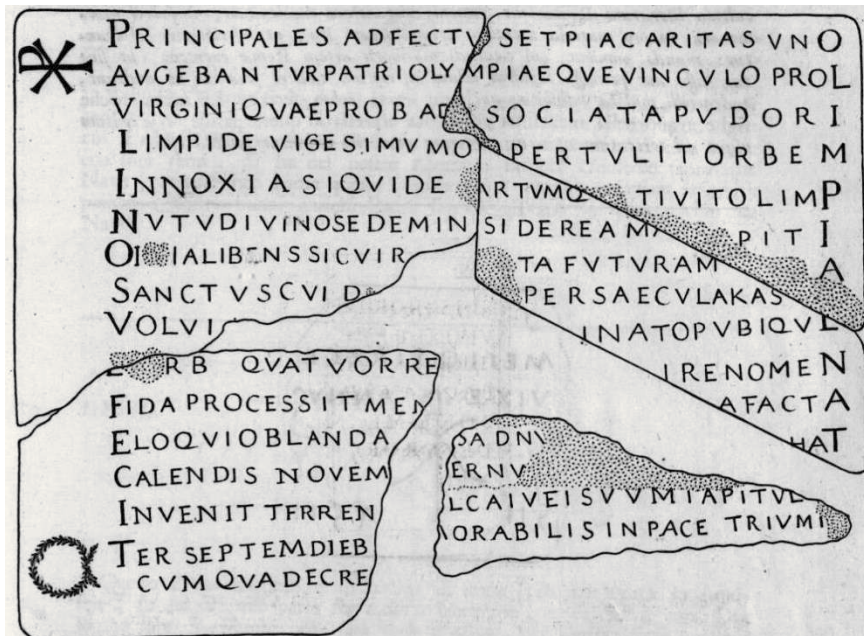 PRINCIPALES ADFECTVSETPIACARITASVNO
AVGEBANTVRPATRIOLYMPIAEQVEVINCVLOPROL
VIRGINIQVAEPROBAD SOCIATAPVDORI
LIMPIDEVIGESIMVMO PERTVLITORBEM
INNOXIASIQVIDE ARTVMQ TIVITOLIMP
NVTVDIVINOSEDEMIN SIDEREAMA PITI
OI IALIBENSSICVIR TAFVTVRAM A
SANCTVSCVID PERSAECVLAKAS
VOLVI INATOPVBIQVL
RB QVATVORRE IRENOMEN
FIDAPROCESSITMEN AFACTA
ELOQVIOBLANDA SADN HAT
CALENDIS NOVEM ERNV
INVENITTERREN LCAIVEISVVMIAPITVL
TER SEPTEMDIEB ORABILISINPACE TRIVMI
CVMQVADECRE